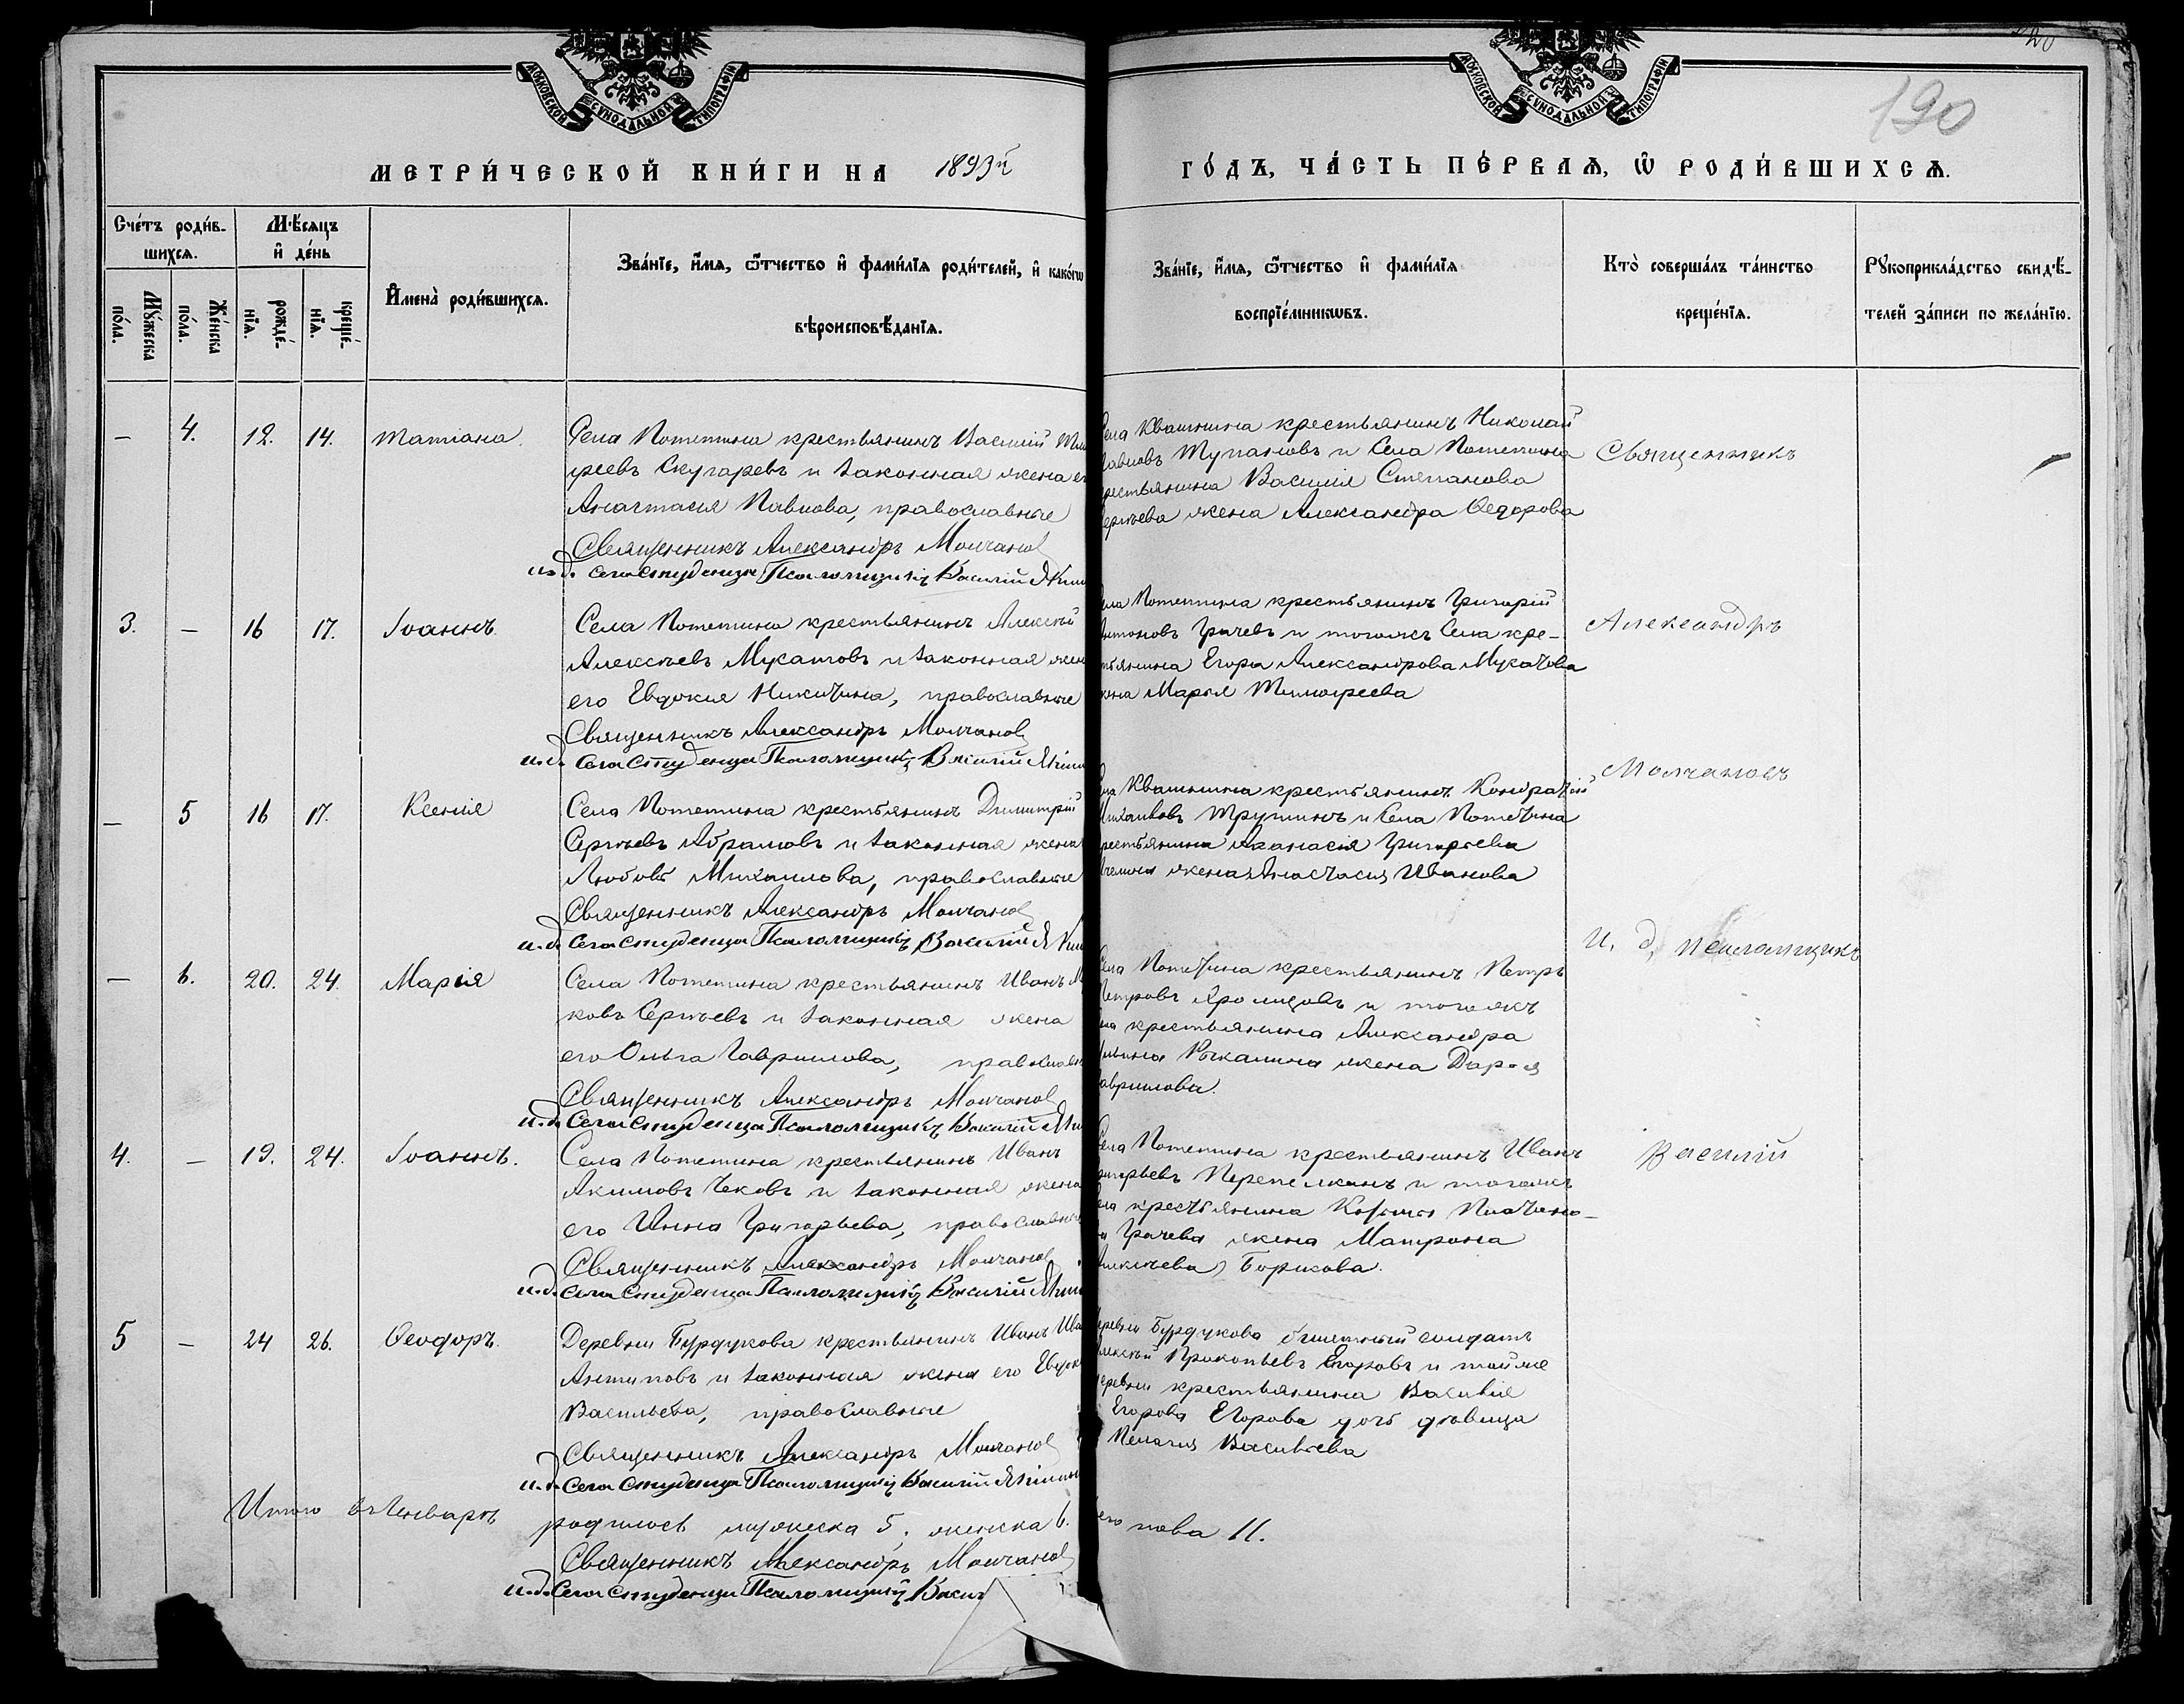 120
190
МОСКОВСКОЙ СѴНОДАЛЬНОЙ ТИПОГРАФІИ
МОСКОВСКОЙ СѴНОДАЛЬНОЙ ТИПОГРАФІИ
МЕТРИ́ЧЕСКОЙ КНИ́ГИ НА 1893й
ГО́ДЪ, ЧА́СТЬ ПЕ́РВАѦ, Ѡ҆ РОДИ́ВШИХСѦ.
Сче́тъ роди́в-
шихсѧ.
Мꙋ́жеска
по́ла.
Же́нска
по́ла.
Мѣ́сѧцъ
и҆ де́нь
рожде́-
нїѧ.
креще́-
нїѧ.
И҆мена̀ роди́вшихсѧ.
Зва́нїе, и҆́мѧ, ѻ҆́тчество и҆ фами́лїѧ роди́телей, и҆ како́гѡ
вѣроисповѣ́данїѧ.
Зва́нїе, и҆́мѧ, ѻ҆́тчество и҆ фами́лїѧ
воспрїе́мникѡвъ.
Кто̀ соверша́лъ та́инство
креще́нїѧ.
Рꙋкоприкла́дство свидѣ́-
телей за́писи по жела́нїю.
— 4. 12. 14. Татіана.
Села Потетина крестьянинъ Василій Тимо
феевъ Скугаревъ и законная жена его
Анастасія Павлова, православные
Священникъ Александръ Молчанов
и. д. Села Студенца Псаломщикъ Василій
Села Квашнина крестьянинъ Николай
Павловъ Тупановъ и Села Потетина
крестьянина Василія Степанова
Сергѣева жена Александра Ѳедорова
Священникъ
3. — 16 17. Іоаннъ.
Села Потетина крестьянинъ Алексѣй
Алексѣевъ Мукатовъ и законная жена
его Евдокія Никитина, православные
Священникъ Александръ Молчанов
и. д. Села Студенца Псаломщикъ Василій
Села Потетина крестьянинъ Григорій
Антоновъ Грачевъ и тогоже Села кре-
стьянина Егора Александрова Мукатова
жена Марья Тимофеева
Александръ
— 5 16 17. Ксенія
Села Потетина крестьянинъ Димитрій
Сергѣевъ Абрамовъ и законная жена
Любовь Михаилова, православные
Священникъ Александръ Молчанов
и. д. Села Студенца Псаломщикъ Василій
Села Квашнина крестьянинъ Кондратій
Михаиловъ Трутинъ и Села Потетина
крестьянина Аѳанасія Григорьева
жена Анастасія Иванова
Молчановъ
— 6. 20. 24. Марія
Села Потетина крестьянинъ Иванъ
ковъ Сергѣевъ и законная жена
его Ольга Гаврилова, православн
Священникъ Александръ Молчанов
и. д. Села Студенца Псаломщикъ Василій
Села Потетина крестьянинъ Петръ
Петровъ и тогоже
Села крестьянина Александра
Ильина Рыкалина жена Дарья
Гаврилова.
И. д. псаломщикъ
4. — 19. 24. Іоаннъ.
Села Потетина крестьянинъ Иванъ
Акимовъ Чековъ и законная жена
его Анна Григорьева, православные
Священникъ Александръ Молчанов
и. д. Села Студенца Псаломщикъ Василій
Села Потетина крестьянинъ Иванъ
Григорьевъ Перепелкинъ и тогоже
Села крестьянина Козьмы Платоно-
ва Грачева жена Матрона
Алексѣева Борисова.
Василій
5 — 24 26. Ѳеодоръ.
Деревни Бурдукова крестьянинъ Иванъ Ива
Антиповъ и законная жена его Евдок
Васильева, православные
Священникъ Александръ Молчанов
и. д. Села Студенца Псаломщикъ Василій
Деревни Бурдукова билетный солдатъ
Алексѣй Прокопьевъ Егоровъ и тойже
деревни крестьянина Василія
Егорова Егорова дочь дѣвица
Пелагія Васильева
Итого въ Январѣ
родилось мужеска 5, женска 6.
его пола 11.
Священникъ Александръ Молчанов
и. д. Села Студенца Псаломщикъ Васил